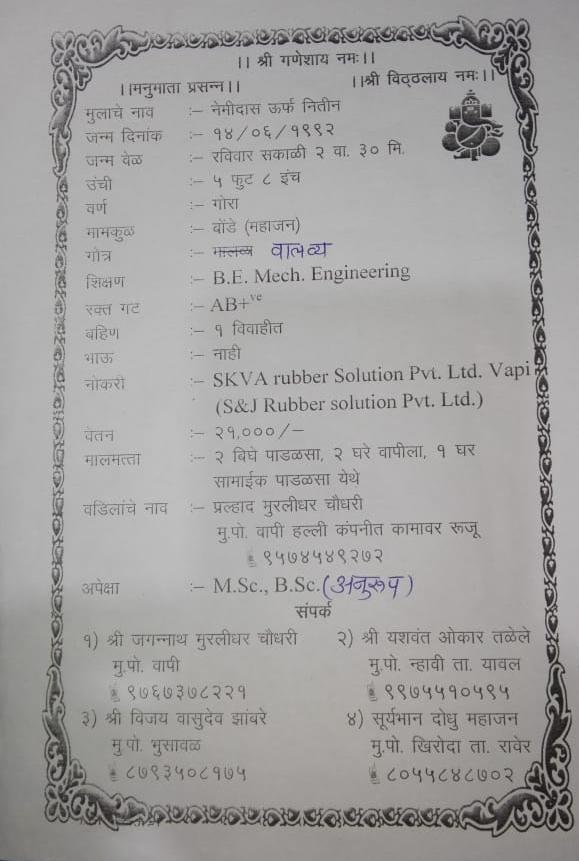 ।। श्री गणेशाय नमः।।
।।मनुमाता प्रसन्न।। ।।श्री विठ्ठलाय नमः।।
मुलाचे नाव :– नेमीदास ऊर्फ नितीन
जन्म दिनांक :– १४/०६/१९९२
जन्म वेळ :– रविवार सकाळी २ वा. ३० मि.
उंची :– ५ फुट ८ इंच
वर्ण :– गोरा
मामकुळ :– बोंडे (महाजन)
गोत्र :– वालव्य
शिक्षण :– B.E. Mech. Engineering
रक्त गट :– AB+ve
बहिण :– १ विवाहीत
भाऊ :– नाही
नोकरी :– SKVA rubber Solution Pvt. Ltd. Vapi
(S&J Rubber solution Pvt. Ltd.)
वेतन :– २१,०००/–
मालमत्ता :– २ बिघे पाडळसा, २ घरे वापीला, १ घर
सामाईक पाडळसा येथे
वडिलांचे नाव :– प्रल्हाद मुरलीधर चौधरी
मु.पो. वापी हल्ली कंपनीत कामावर रूजू
९५७४५४९२७२
अपेक्षा :– M.Sc., B.Sc. (अनुरूप)
संपर्क
१) श्री जगन्नाथ मुरलीधर चौधरी २) श्री यशवंत ओकार तळेले
मु.पो. वापी मु.पो. न्हावी ता. यावल
९७६७३७८२२१ ९९७५५१०५९५
३) श्री विजय वासुदेव झांबरे ४) सूर्यभान दोधु महाजन
मु.पो. भुसावळ मु.पो. खिरोदा ता. रावेर
८७९३५०८१७५ ८०५५८४८७०२